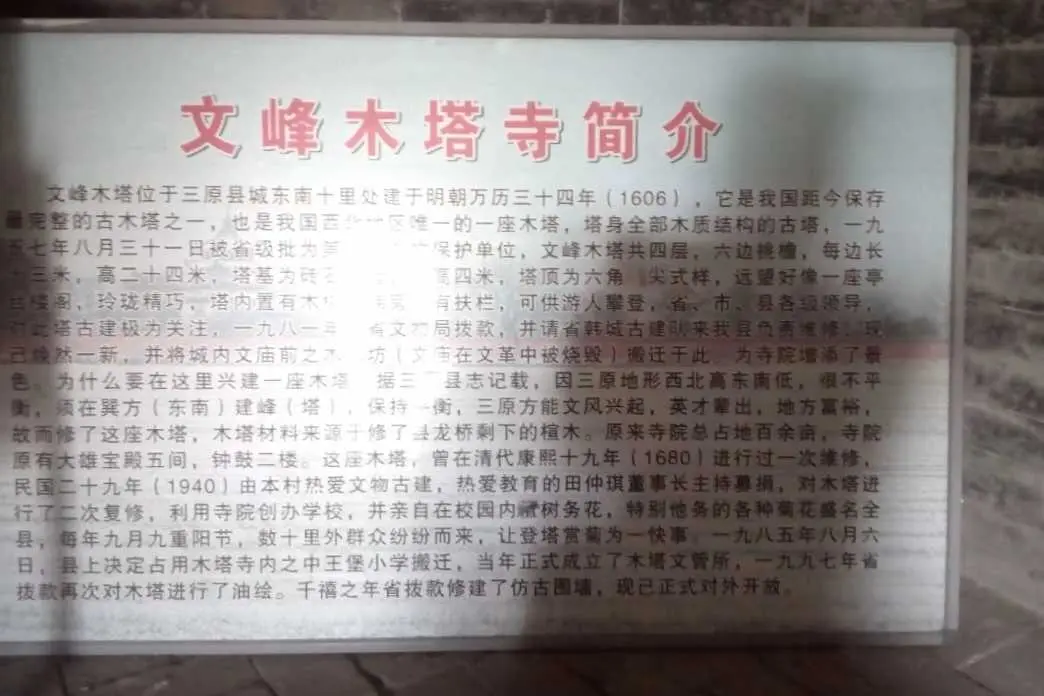 文峰木塔寺简介
文峰木塔位于三原县城东南十里处建于明朝万历三十四年(1606),它是我国距今保存
完整的古木塔之一,也是我国西 区唯一的一座木塔,塔身全部木质结构的古塔,一九
七年八月三十一日被省级批为 保护单位,文峰木塔共四层,六边挑檐,每边长
三米,高二十四米,塔基为砖 高四米,塔顶为六角 尖式样,远望好像一座亭
楼阁,玲珑精巧,塔内置有木 有扶栏,可供游人攀登,省、市、县各级领导,
此塔古建极为关注,一九八一年 省文物局拨款,并请省韩城古建队来我县负责维修,现
已焕然一新,并将城内文庙前之木 坊(文庙在文革中被烧毁)搬迁于此,为寺院增添了景
色。为什么要在这里兴建一座木塔 据三 县志记载,因三原地形西北高东南低,很不平
衡,须在巽方(东南)建峰(塔),保持 衡,三原方能文风兴起,英才辈出,地方富裕,
故而修了这座木塔,木塔材料来源于修了县龙桥剩下的楦木。原来寺院总占地百余亩,寺院
原有大雄宝殿五间,钟鼓二楼。这座木塔,曾在清代康熙十九年(1680)进行过一次维修,
民国二十九年(1940)由本村热爱文物古建,热爱教育的田仲琪董事长主持募捐,对木塔进
行了二次复修,利用寺院创办学校,并亲自在校园内 树务花,特别他务的各种菊花盛名全
县,每年九月九重阳节,数十里外群众纷纷而来,让登塔赏菊为一快事。一九八五年八月六
日,县上决定占用木塔寺内之中王堡小学搬迁,当年正式成立了木塔文管所,一九九七年省
拨款再次对木塔进行了油绘。千禧之年省拨款修建了仿古围墙,现已正式对外开放。